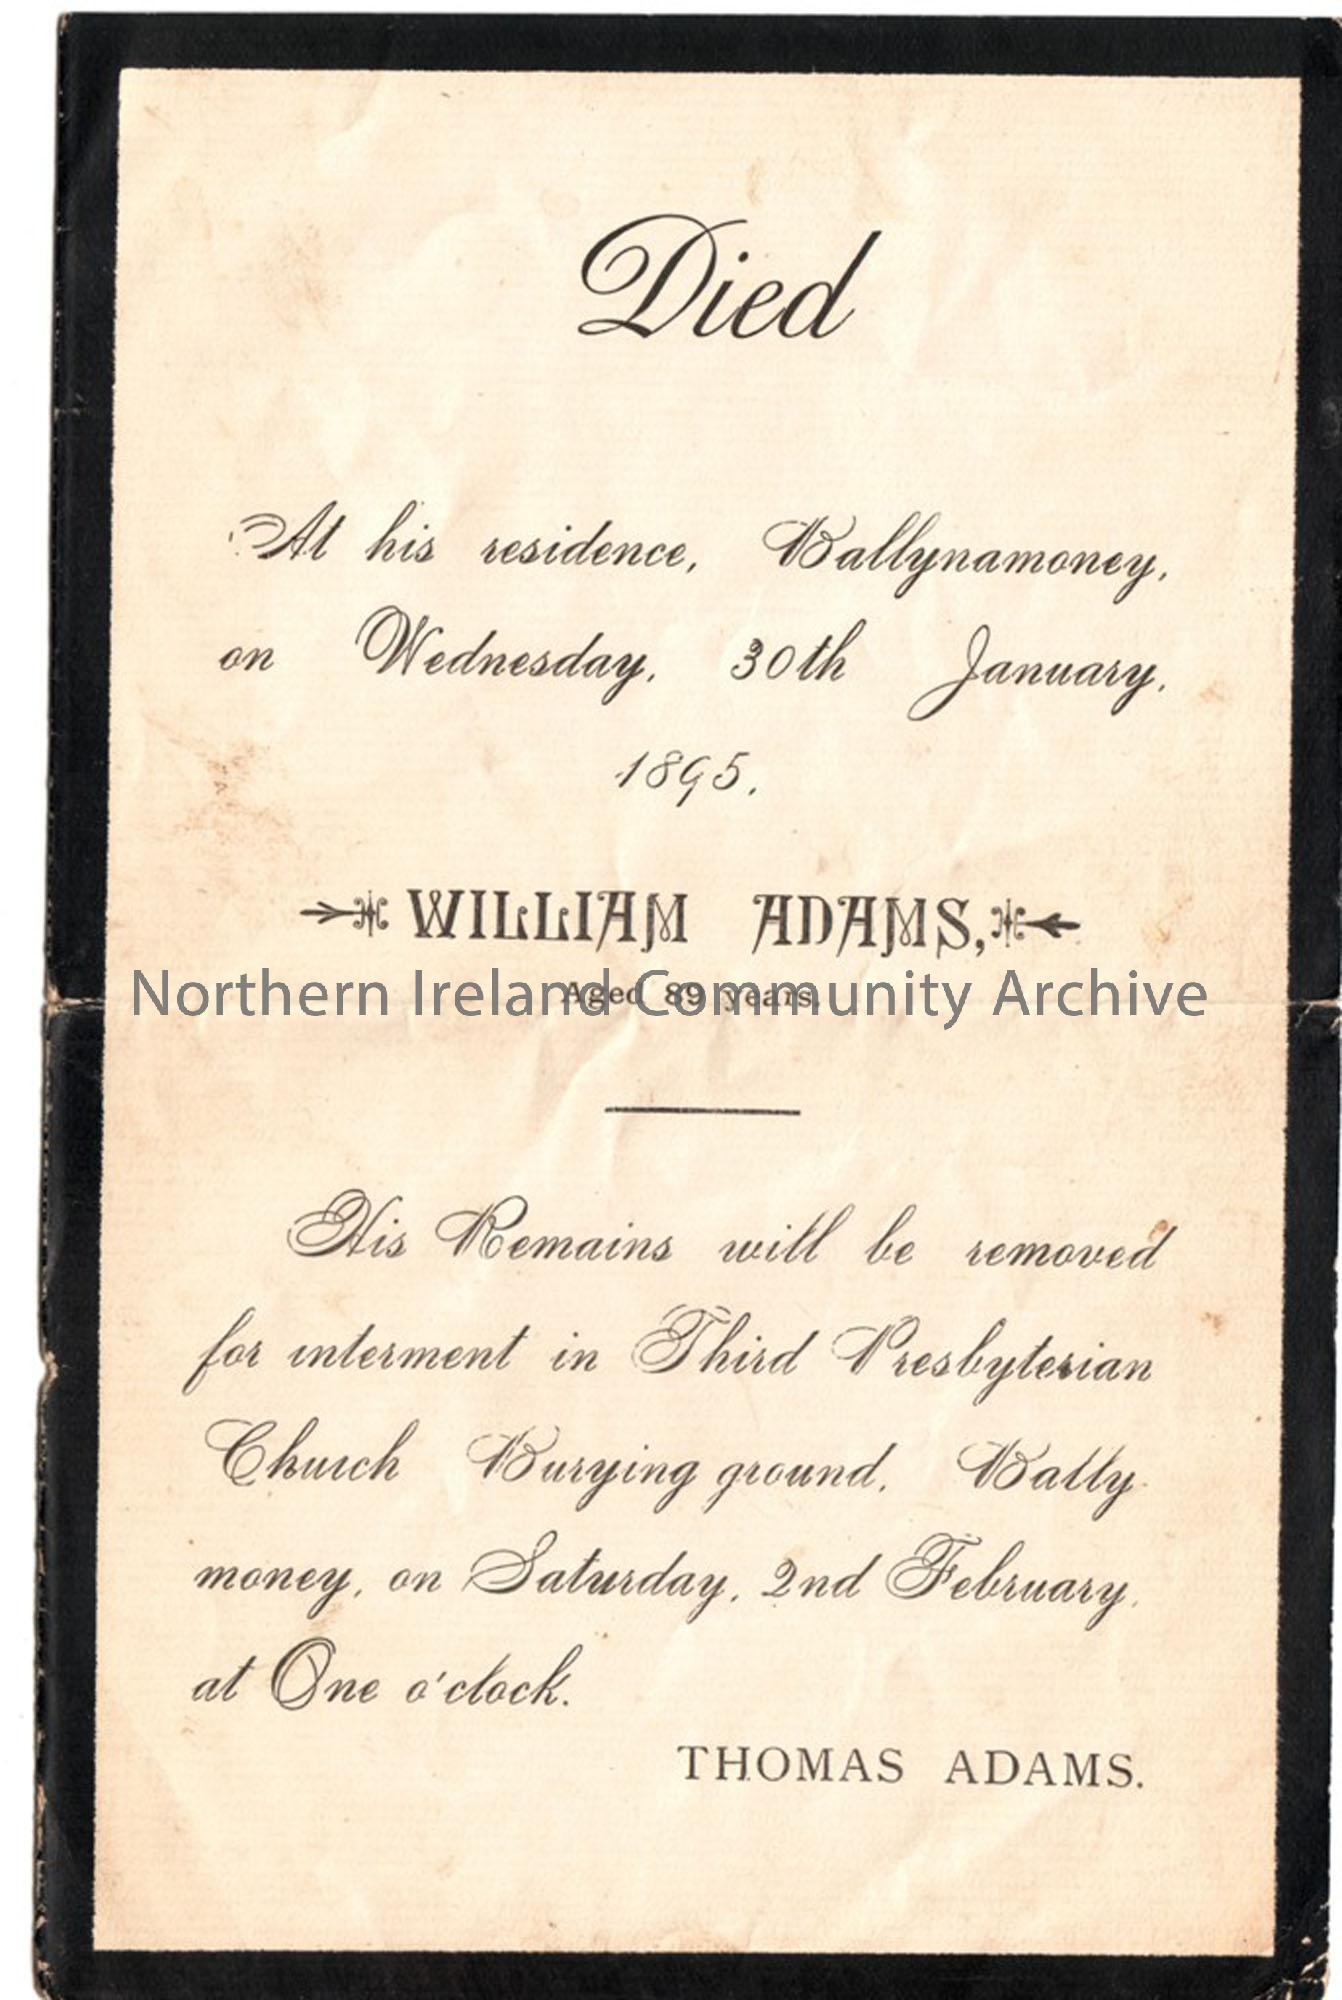 Died
At his residence, Ballynamoney,
on Wednesday, 30th January,
1895.
WILLIAM ADAMS,
Northern Ireland Community Archive
Aged 89 years.
His Remains will be removed
for interment in Third Presbyterian
Church Burying ground, Bally-
money, on Saturday, 2nd February,
at One o'clock.
THOMAS ADAMS.